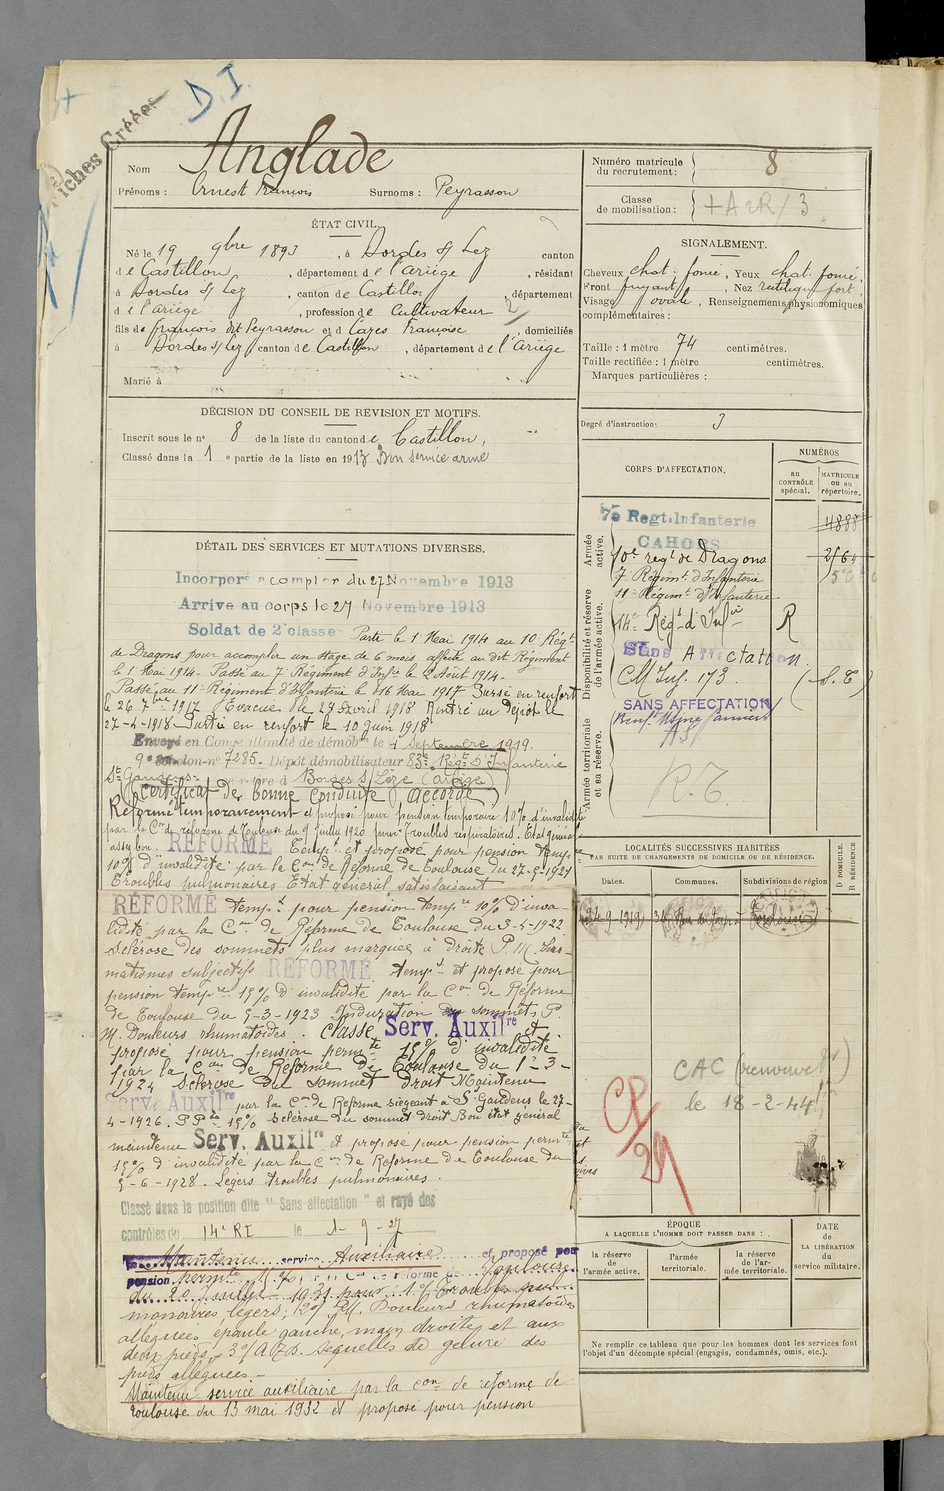 D I
Fiches Créées
Nom Anglade
Prénoms : Ernest François Surnoms : Peyrasson
ÉTAT CIVIL.
Né le 19 9bre 1893, à Bordes s/ Lez canton
de Castillon, département de l'Ariège, résidant
à Bordes s/ Lez, canton de Castillon, département
de l'ariège, profession de Cultivateur 2
fils de françois dit Peyrasson et de Cazes Françoise, domiciliés
à Bordes s/ Lez canton de Castillon, département de l'Ariège
Marié à
DÉCISION DU CONSEIL DE REVISION ET MOTIFS.
Inscrit sous le n° 8 de la liste du canton de Castillon,
Classé dans la 1e partie de la liste en 1913 Bon service armé
DÉTAIL DES SERVICES ET MUTATIONS DIVERSES.
Incorporé à compter du 27 Novembre 1913
Arrivé au corps le 27 Novembre 1913
Soldat de 2e classe Parti le 1 Mai 1914 au 10e Régt
de Dragons pour accomplir un stage de 6 mois, affecté au dit Régiment
le 1er Mai 1914. Passé au 7e Régiment d'Infie le 2 Août 1914.
Passé au 11e Régiment d'Infanterie le 16 Mai 1917 Passé en renfort
le 26 7bre 1917 Evacué le 28 Avril 1918 Rentré au Dépôt le
27-4-1918 Parti en renfort le 10 Juin 1918
Envoyé en Congé illimité de démob. le 4 septembre 1919.
9e échelon-n° 7285. Dépôt démobilisateur 83e Régt d'Infanterie
St Gaudens. se retire à Bordes s/ Lèze (Ariège)
(Certificat de bonne conduite accordé)
Réformé temporairement et proposé pour pension temporaire 10% d'invalidité
par la Con de réforme de Toulouse du 9 juillet 1920 pour Troubles respiratoires. Etat général
assez bon. RÉFORMÉ Tempt et proposé pour pension tempre
10% d'invalidité par la Con de Réforme de Toulouse du 27-5-1921
Troubles pulmonaires Etat général satisfaisant
RÉFORMÉ tempt pour pension tempre 10% d'inva-
lidité par la Con de Réforme de Toulouse du 3-5-1922
Sclérose des sommets plus marquée à droite P.M. rhu-
matismes subjectifs RÉFORMÉ tempt et proposé pour
pension tempre 15% d'invalidité par la Con de Réforme
de Toulouse du 5-3-1923 Induration des sommets P.
M. Douleurs rhumatoïdes. Classé Serv. Auxilre et
proposé pour pension permte 15% d'invalidité
par la Con de Réforme de Toulouse du 1-3-
1924 Sclérose du sommet droit Maintenu
Serv. Auxilre par la Con de Réforme siégeant à St Gaudens le 27-
4-1926. PPte 15% Sclérose du sommet droit Bon état général
maintenu Serv. Auxilre et proposé pour pension permte
15% d'invalidité par la Con de Réforme de Toulouse du
5-6-1928. Légers troubles pulmonaires.
Classé dans la position dite "Sans affectation" et rayé des
contrôles du 14e RI le 1-9-27
Maintenu service Auxiliaire et proposé pour
pension permte réforme de Toulouse
du 20 Juillet 1931 pour 1°/ Troubles pul-
monaires légers; 2°/ P.M. Douleurs rhumatoïdes
alléguées épaule gauche, main droite et aux
deux pieds, 3°/ A.G.D. séquelles de gelure des
pieds alléguées. –
Maintenu service auxiliaire par la con de réforme de
Toulouse du 13 mai 1932 et proposé pour pension
Numéro matricule du recrutement : 8
Classe de mobilisation :
SIGNALEMENT.
Cheveux chat. foncé, Yeux chat. foncé.
Front fuyant, Nez rectiligne fort,
Visage ovale, Renseignements physionomiques
complémentaires :
Taille : 1 mètre 74 centimètres.
Taille rectifiée : 1 mètre centimètres.
Marques particulières :
Degré d'instruction : 3
CORPS D'AFFECTATION.
NUMÉROS
au CONTRÔLE spécial.
MATRICULE ou au répertoire.
Armée active.
Disponibilité et réserve de l'armée active.
Armée territoriale et sa réserve.
7e Regt. Infanterie 4888
CAHORS
10e régt de Dragons
7e Régimt d'Infanterie
11e Régimt d'Infanterie
14e Régt d'Infie R
Sans Affectation
CM Inf. 173.
SANS AFFECTATION
R.T.
LOCALITÉS SUCCESSIVES HABITÉES
PAR SUITE DE CHANGEMENTS DE DOMICILE OU DE RÉSIDENCE.
Dates.
Communes.
Subdivisions de région
D DOMICILE. R RÉSIDENCE
Toulouse
CAC (renouvelé)
le 18-2-44
CP/29
ÉPOQUE
A LAQUELLE L'HOMME DOIT PASSER DANS :
la réserve de l'armée active.
l'armée territoriale.
la réserve de l'armée territoriale.
DATE de LA LIBÉRATION du service militaire.
Ne remplir ce tableau que pour les hommes dont les services font
l'objet d'un décompte spécial (engagés, condamnés, omis, etc.).